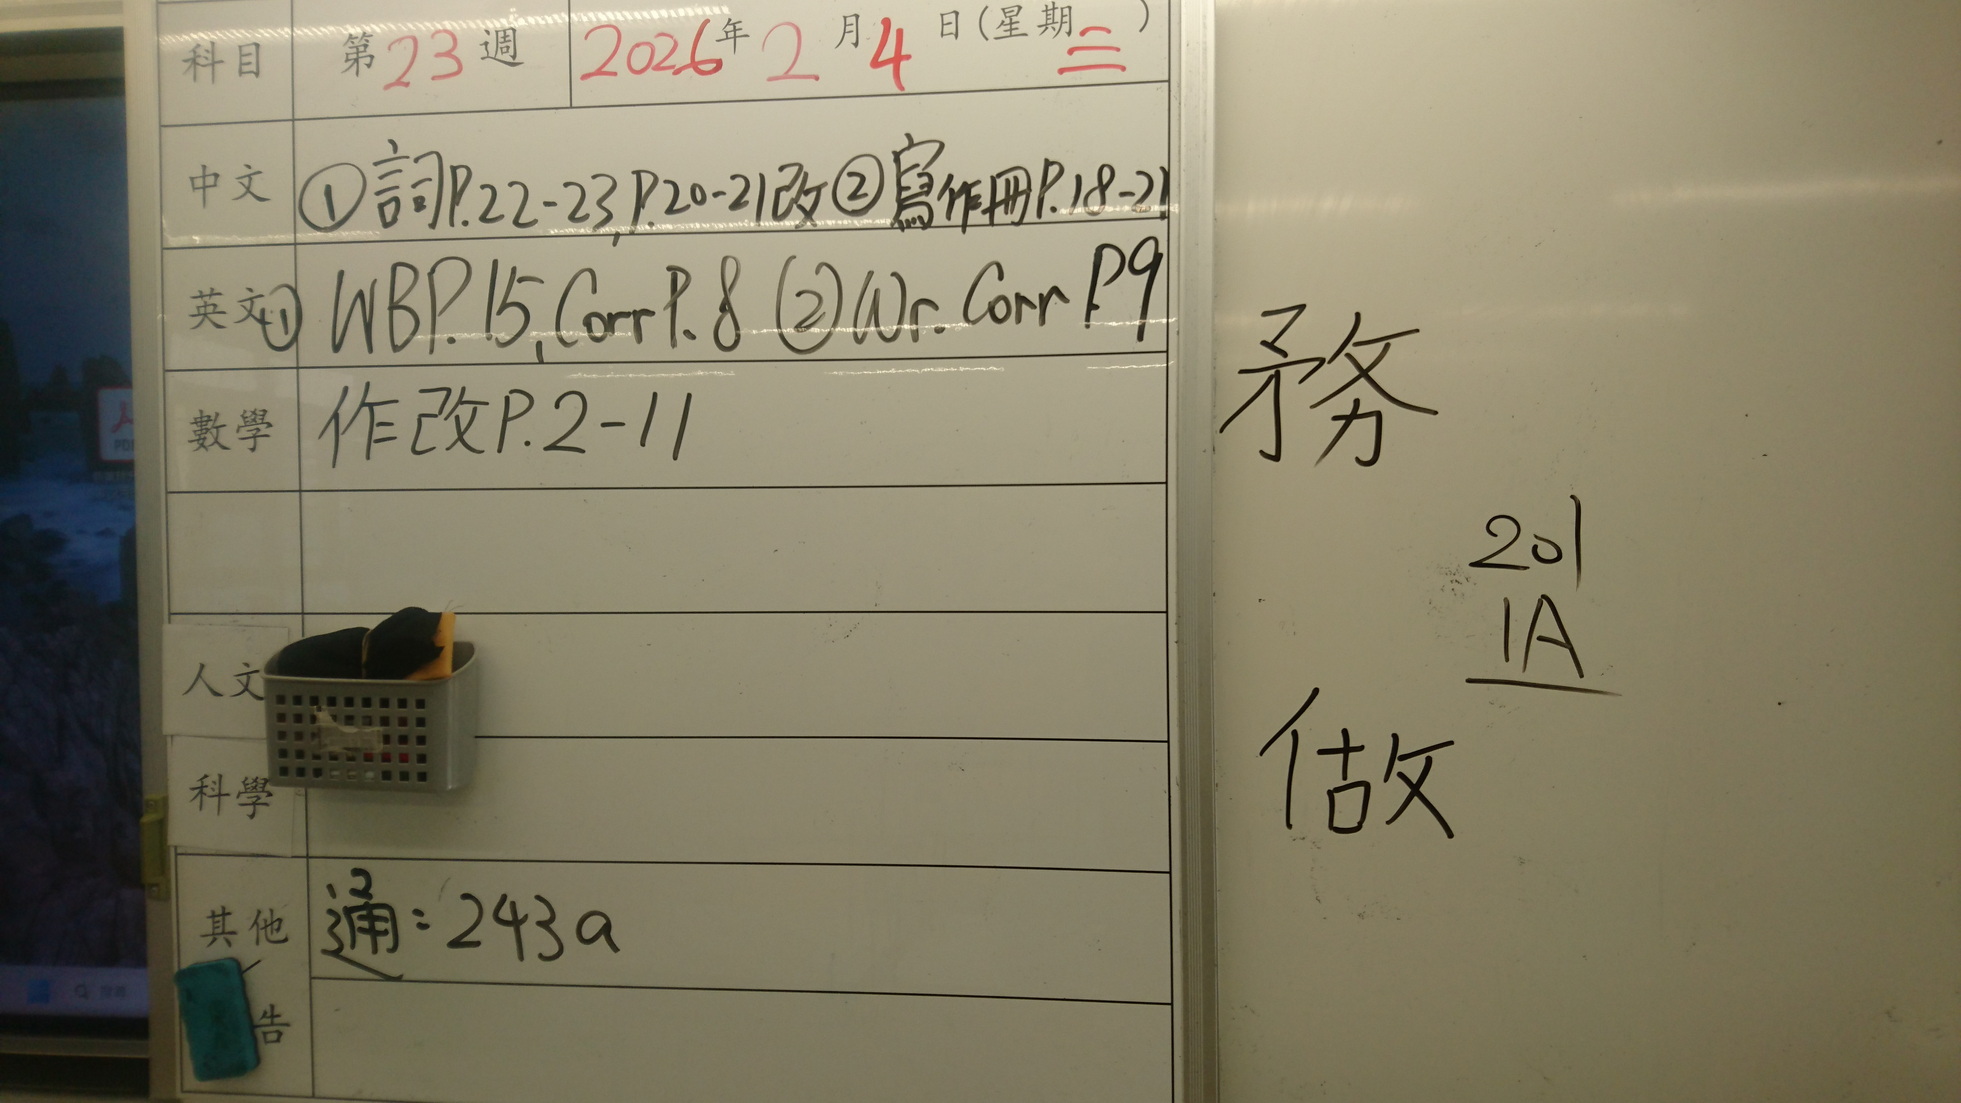 科目 第23週 2026年2月4日(星期三)
中文 ①詞P.22-23,P.20-21改②寫作冊P.18-21
英文 ①WBP.15,Corr P.8 ②Wr. Corr P.9
數學 作改P.2-11
人文
科學
其他 通:243a
告
務
201
1A
做
PDF